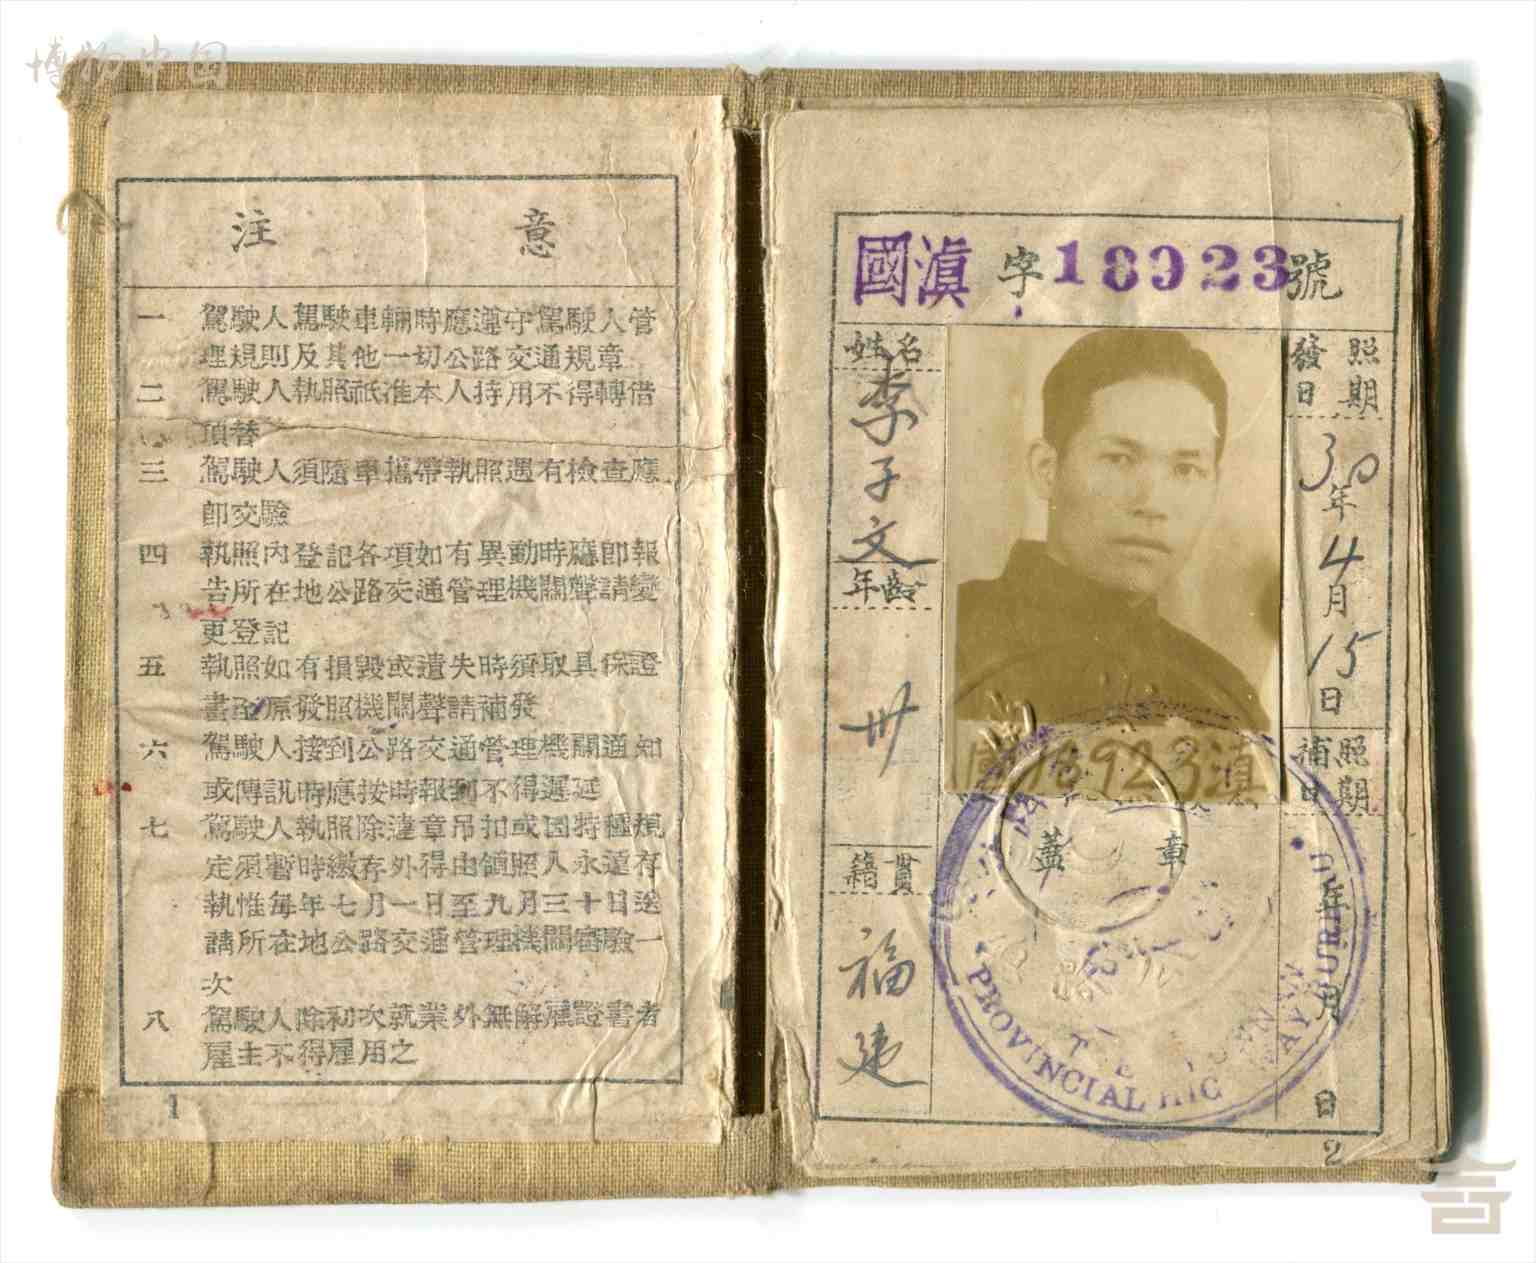 博物中国
注意
一 駕駛人駕駛車輛時應遵守駕駛人管
理規則及其他一切公路交通規章
二 駕駛人執照祇准本人持用不得轉借
頂替
三 駕駛人須隨車攜帶執照遇有檢查應
即交驗
四 執照內登記各項如有異動時應即報
告所在地公路交通管理機關聲請變
更登記
五 執照如有損毀或遺失時須取具保證
書至原發照機關聲請補發
六 駕駛人接到公路交通管理機關通知
或傳訊時應按時報到不得遲延
七 駕駛人執照除違章吊扣或因特種規
定須暫時繳存外得由領照人永遠存
執惟每年七月一日至九月三十日送
請所在地公路交通管理機關審驗一
次
八 駕駛人除初次就業外無解雇證書者
雇主不得雇用之
1
國滇字18923號
姓名
李子文
年齡
卅
籍貫
福建
國18923滇
蓋章
PROVINCIAL
發照日期
30年4月15日
補照日期
年月日
2